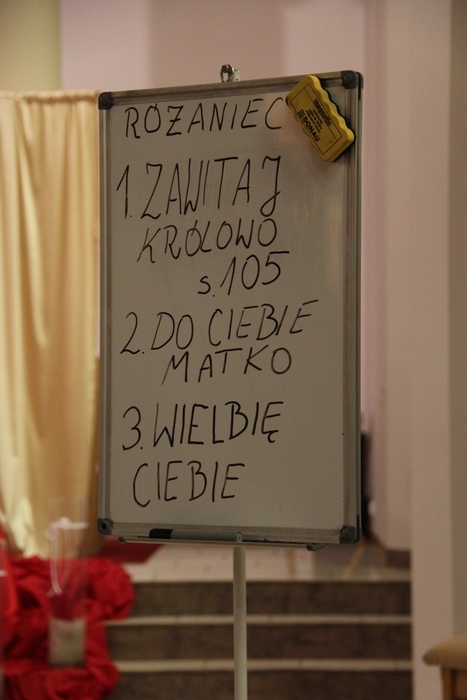 RÓŻANIEC
1. ZAWITAJ
KRÓLOWO
s. 105
2. DO CIEBIE
MATKO
3. WIELBIĘ
CIEBIE
DONAU